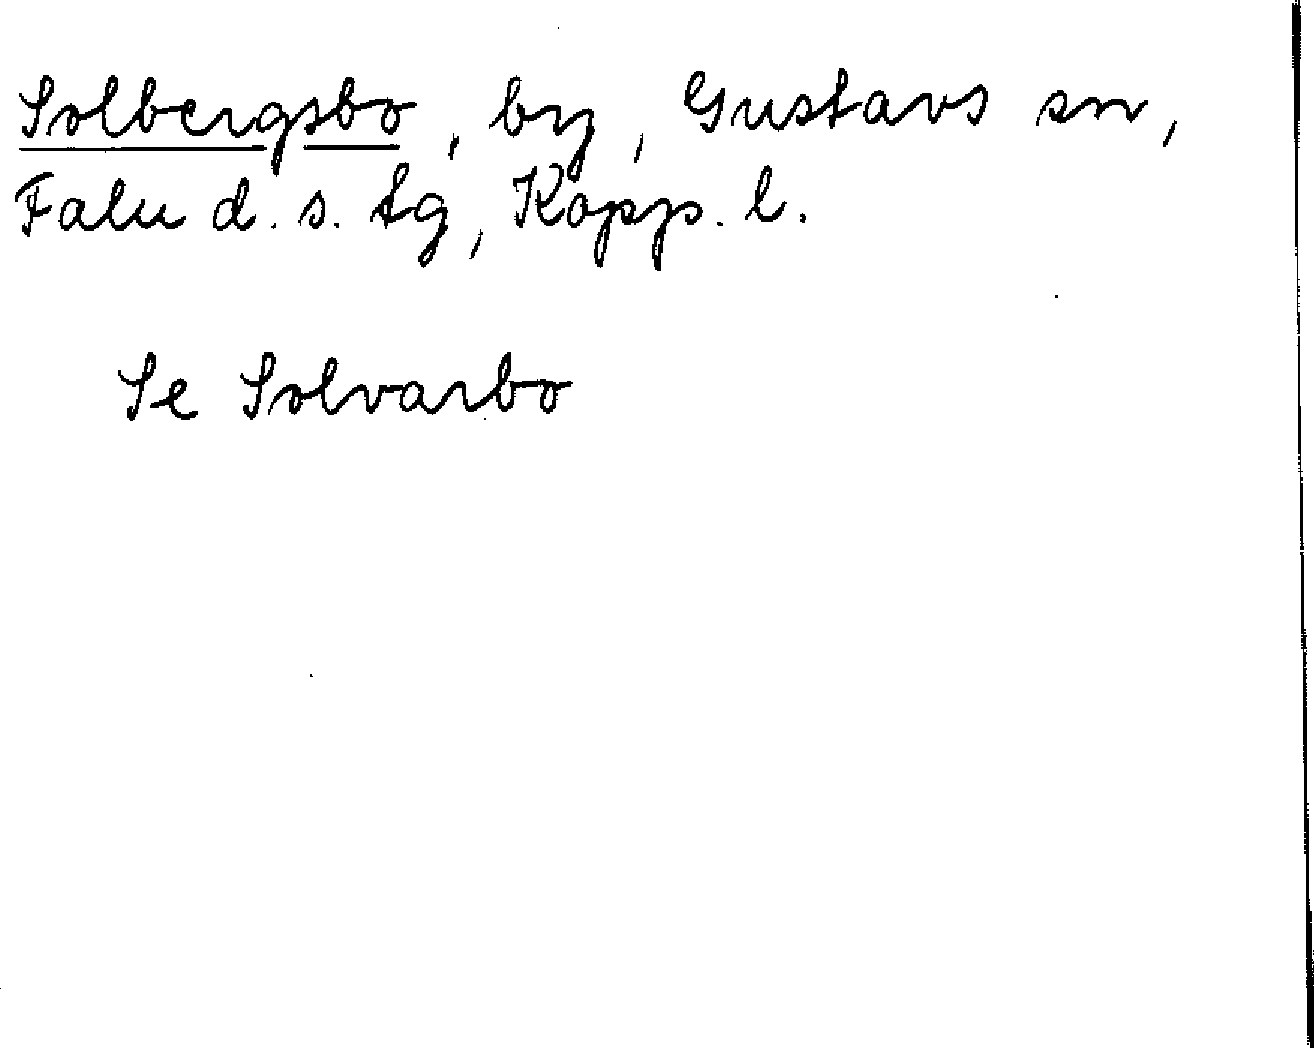 Solbergsbo, by, Gustavs sn,
Falu d. s. tg, Kopp. l.
Se Solvarbo